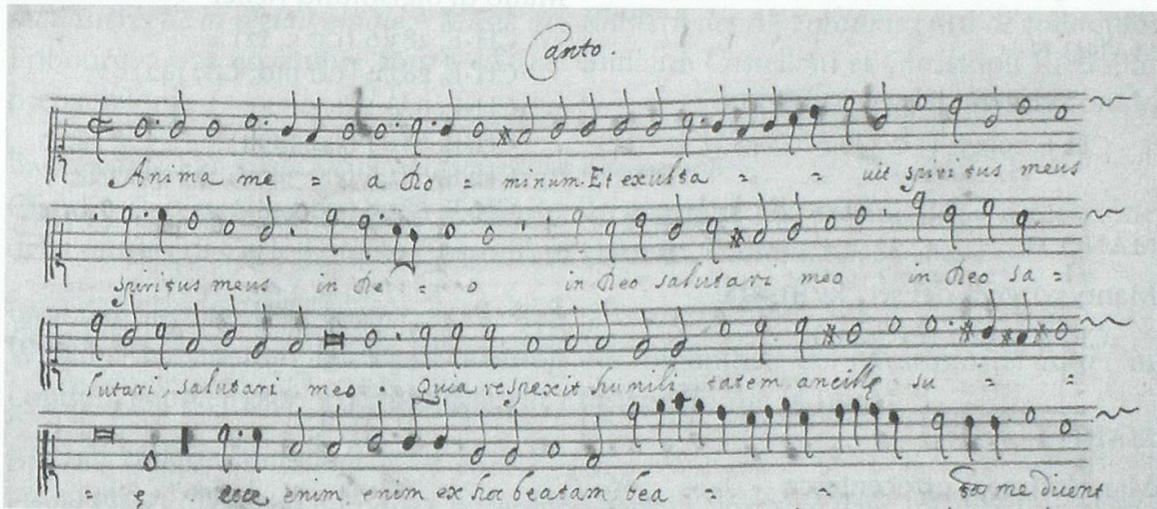 Canto.
Anima me = a Do = minum. Et exulta = = uit spiritus meus
spiritus meus in De = o in Deo salutari meo in Deo sa =
lutari, salutari meo. Quia respexit humili tatem ancillę su = =
= ę ecce, enim, enim ex hoc beatam bea = = me dicent